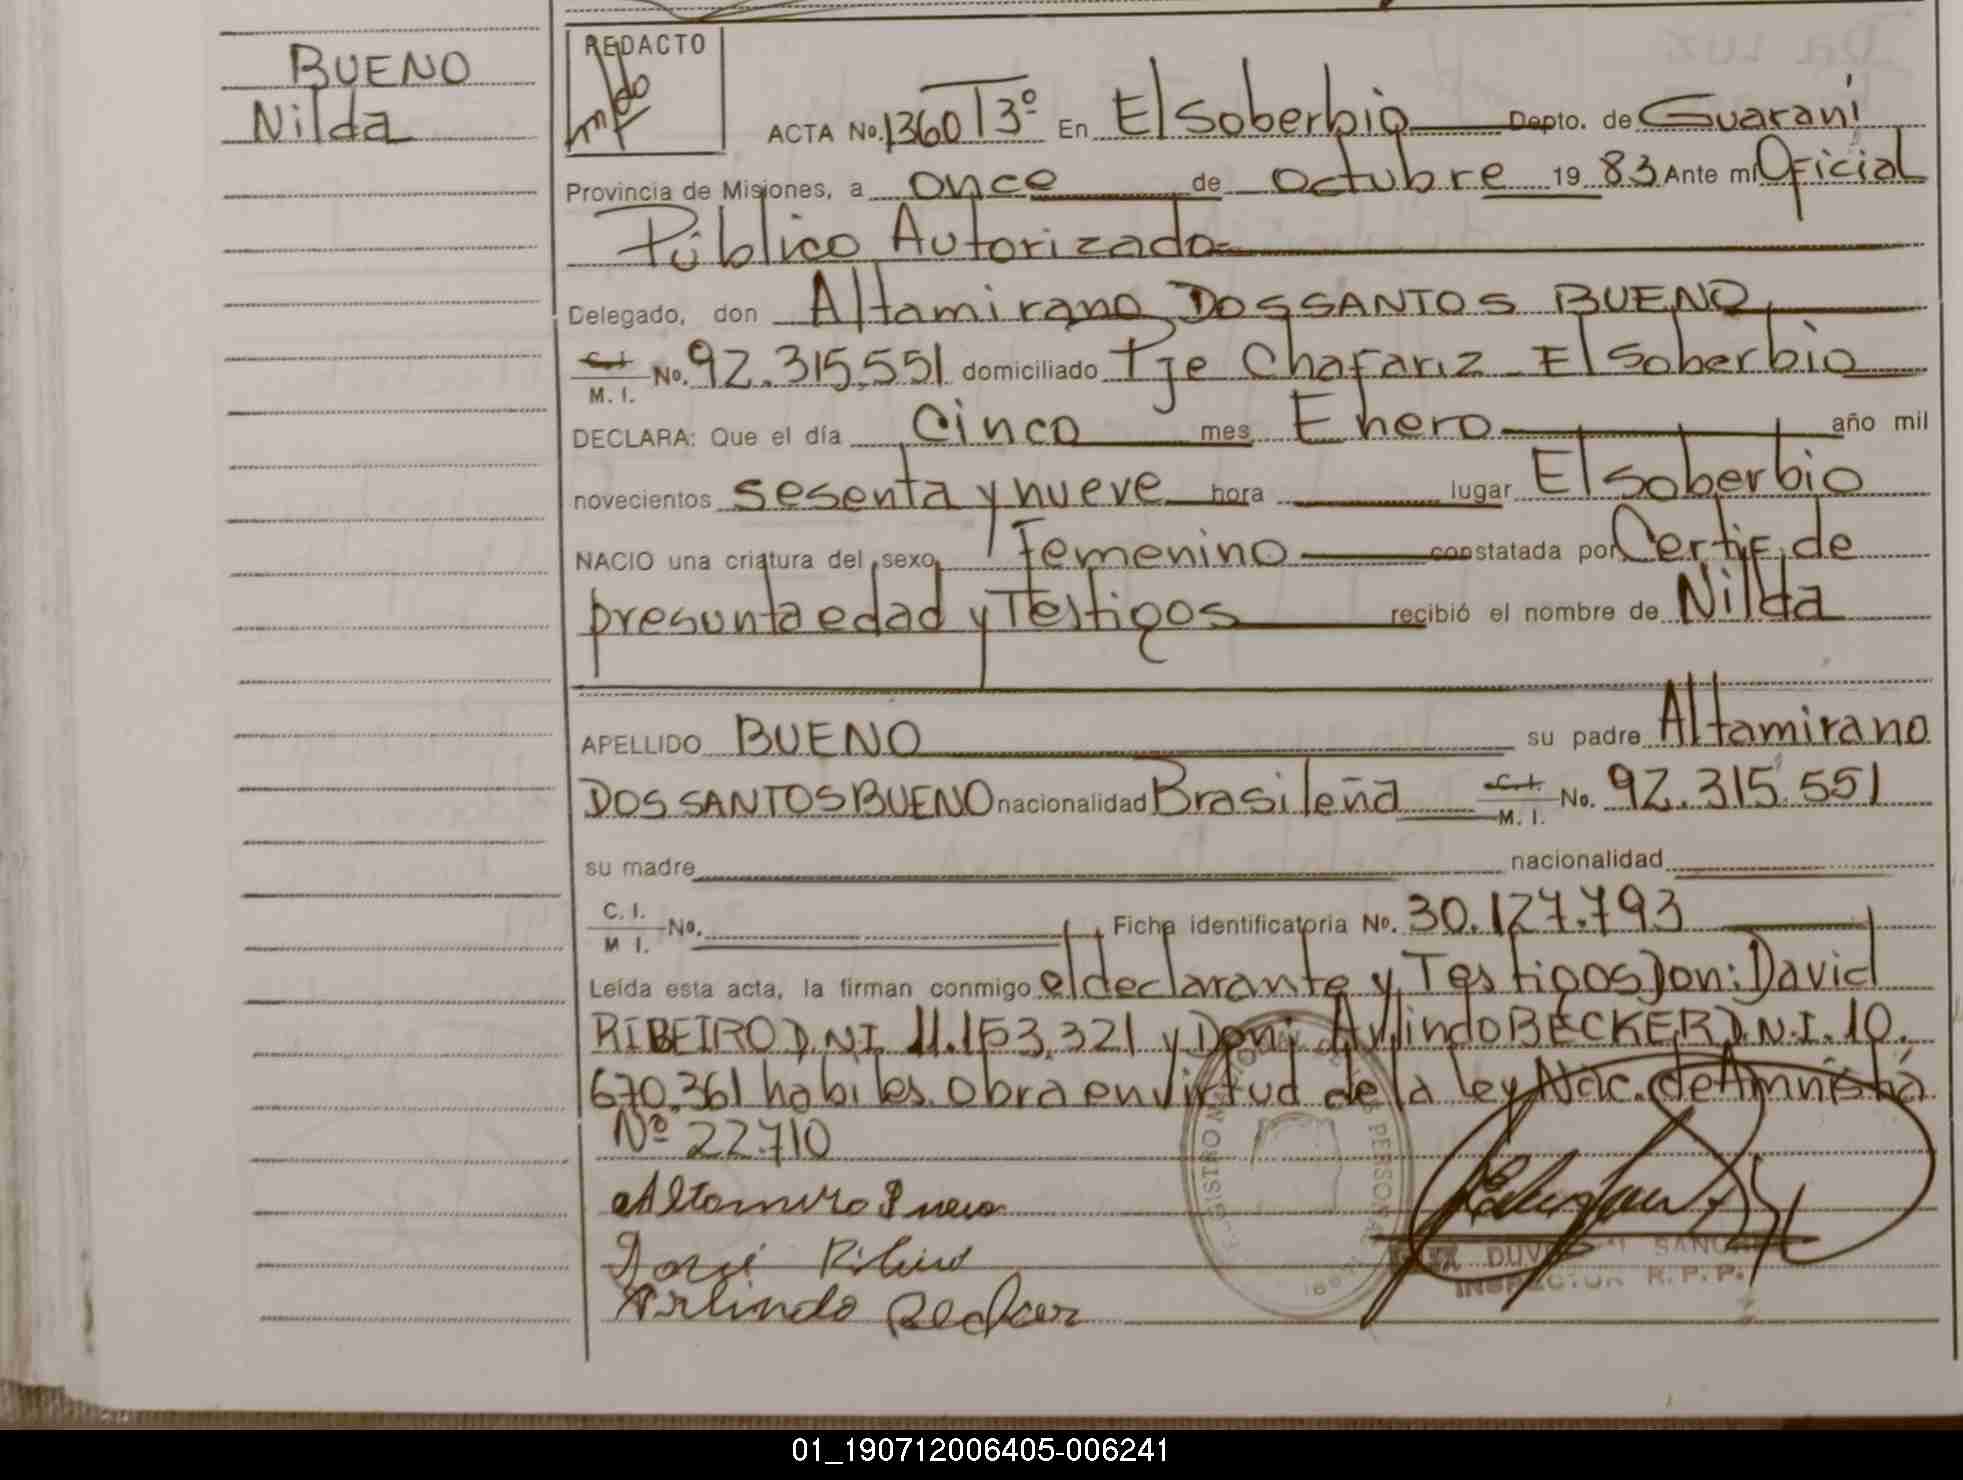 BUENO
Nilda
REDACTO
ACTA No. 1360 T3º En El soberbio Depto. de Guaraní
Provincia de Misiones, a once de octubre 1983 Ante mi Oficial
Público Autorizado
Delegado, don Altamirano DOS SANTOS BUENO
C.I. M. I. No. 92.315.551 domiciliado Pje Chafariz El Soberbio
DECLARA: Que el día cinco mes Enero año mil
novecientos sesenta y nueve hora lugar El soberbio
NACIO una criatura del sexo Femenino constatada por Certif. de
presunta edad y Testigos recibió el nombre de Nilda
APELLIDO BUENO su padre Altamirano
DOS SANTOS BUENO nacionalidad Brasileña C.I. M. I. No. 92.315.551
su madre nacionalidad
C. I. M I. No. Ficha identificatoria No. 30.127.793
Leída esta acta, la firman conmigo el declarante y Testigos Don: David
RIBEIRO D.N.I. 11.153.321 y Don: Arlindo BECKER D.N.I. 10.
670.361 habiles. obra en virtud de la ley Nac. de Amnistía
Nº 22.710
Altamiro Bueno
Arlindo Becker
INSPECTOR R. P. P.
01_190712006405-006241